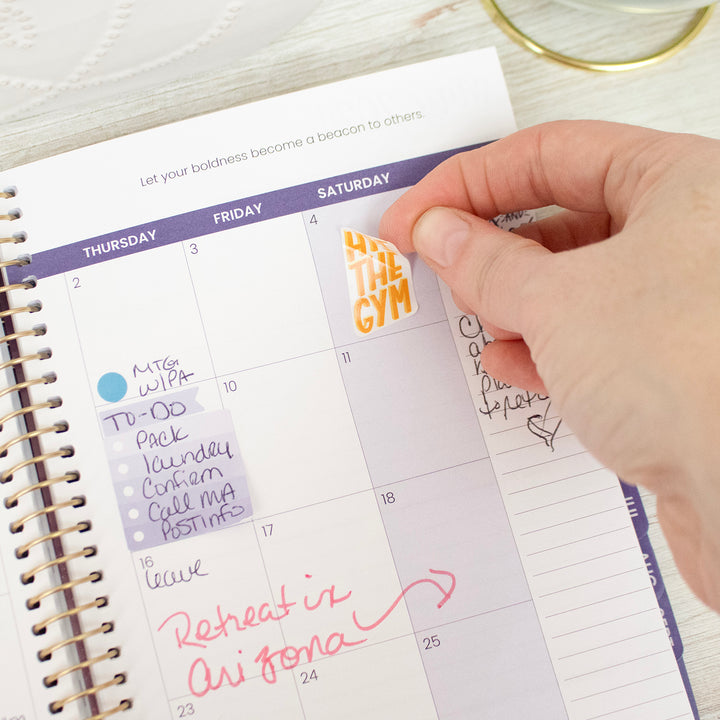 Let your boldness become a beacon to others.
THURSDAY FRIDAY SATURDAY
2 3 4
HIT
THE
GYM
MTG
W/PA
10 11
TO-DO
PACK
laundry
Confirm
Call MA
POST info
16 17 18
leave
Retreat in
Arizona
23 24 25
JUL
AUG
SEPT